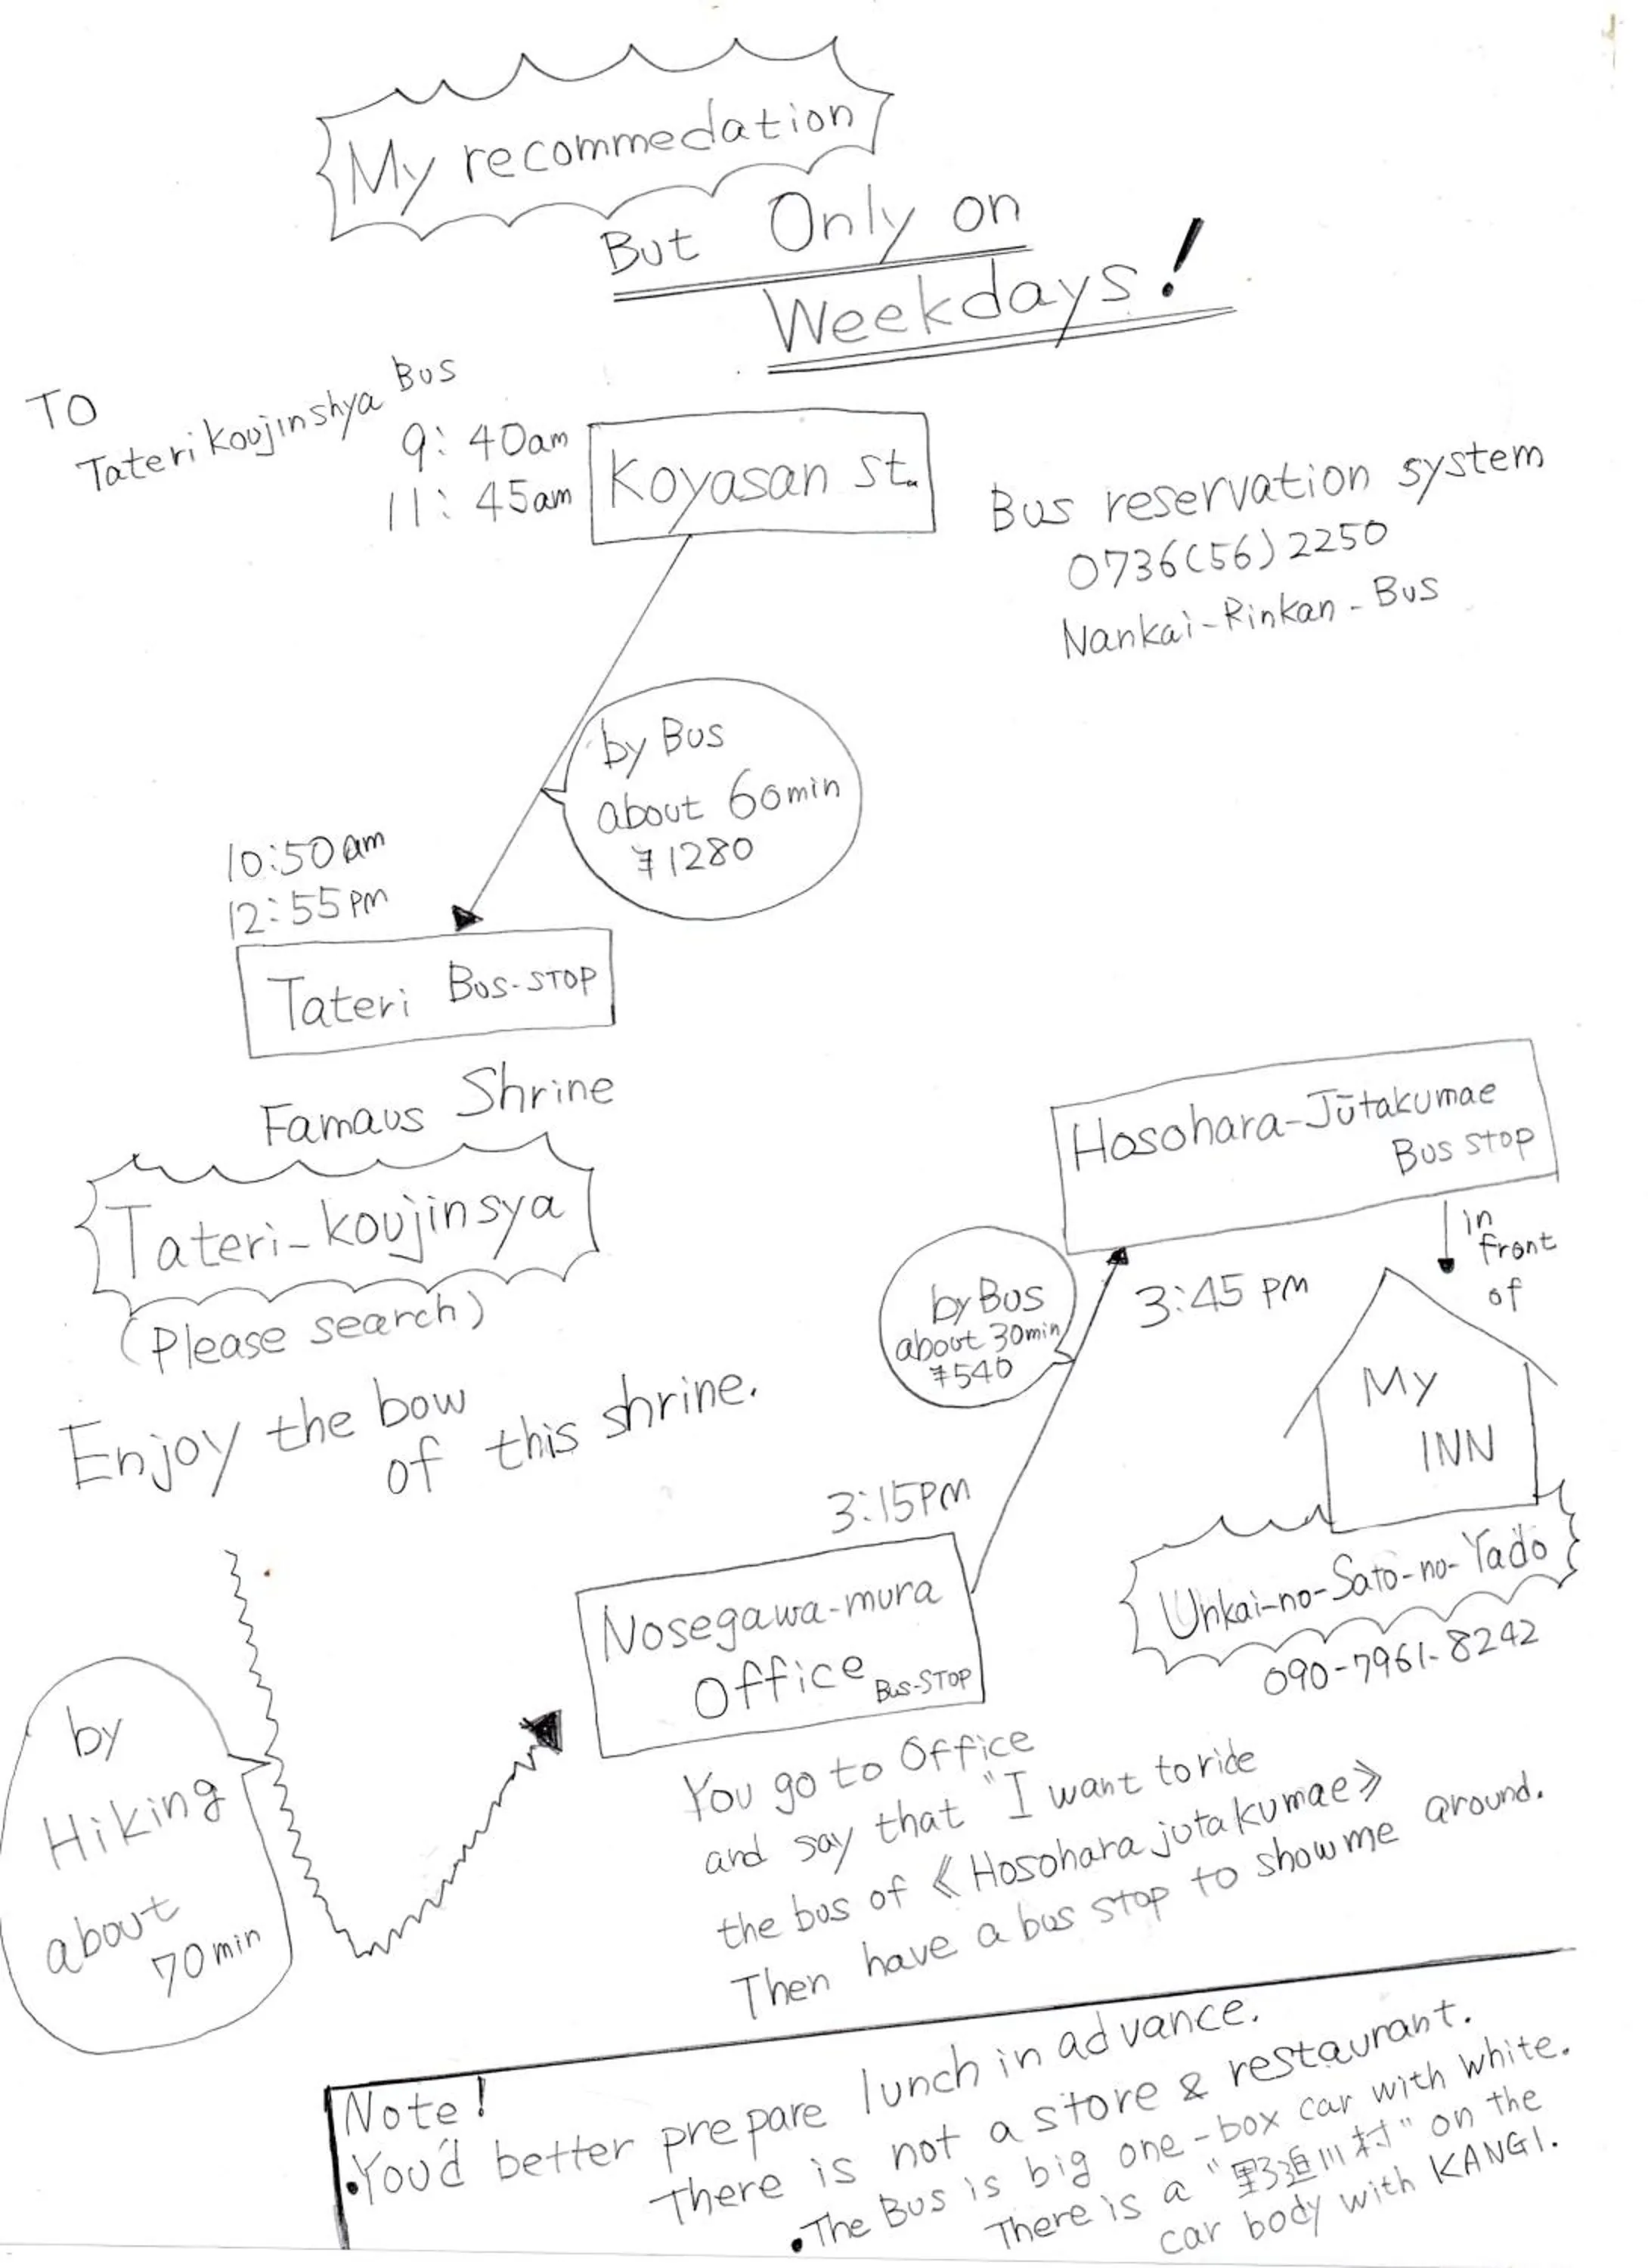 My recommedation
But Only on
Weekdays!
TO
Taterikoujinshya Bus
9:40am
11:45am
Koyasan st.
Bus reservation system
0736(56)2250
Nankai-Rinkan-Bus
by Bus
about 60min
¥1280
10:50am
12:55pm
Tateri Bus-STOP
Famous Shrine
Tateri-koujinsya
(Please search)
Enjoy the bow
of this shrine.
Hosohara-Jūtakumae
Bus stop
in
front
of
by Bus
about 30min
¥540
3:45 PM
My
INN
3:15PM
Unkai-no-Sato-no-Yado
090-7961-8242
Nosegawa-mura
Office Bus-STOP
by
Hiking
about
70min
You go to Office
and say that "I want to ride
the bus of 《Hosohara jutakumae》
Then have a bus stop to show me around.
Note!
•You'd better prepare lunch in advance.
There is not a store & restaurant.
•The Bus is big one-box car with white.
There is a "野迫川村" on the
car body with KANGI.